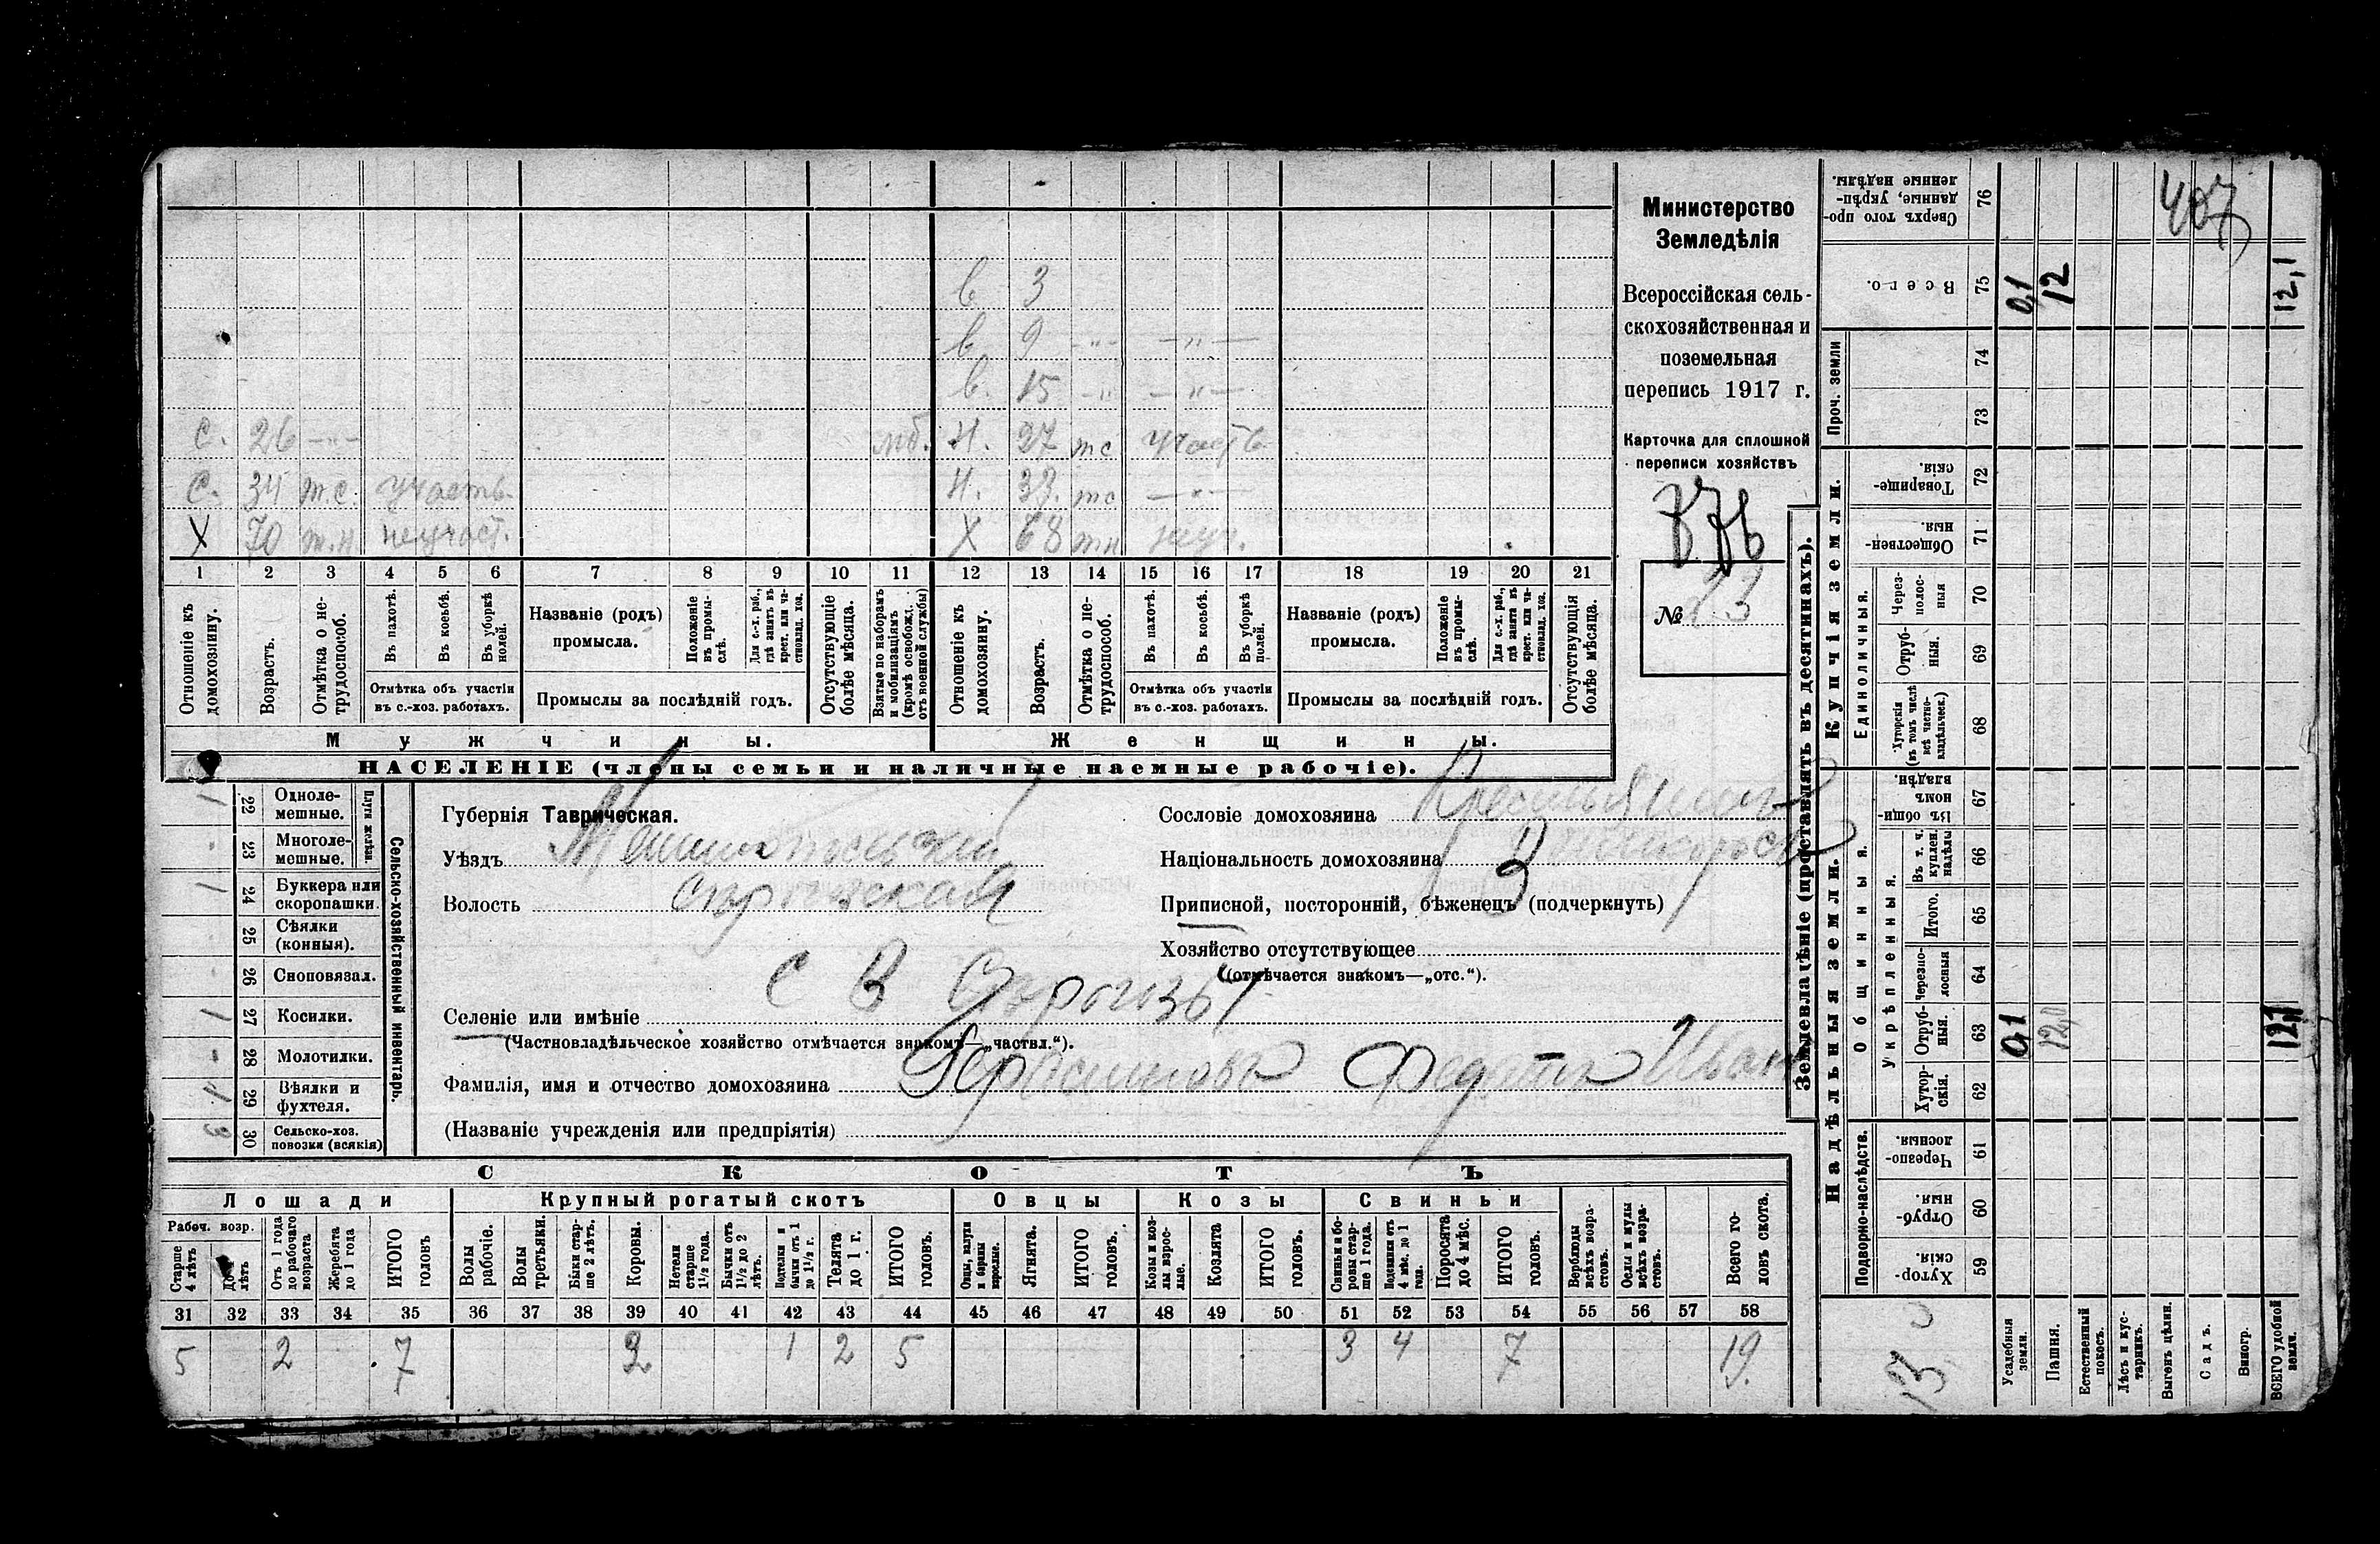 407
в 3
в. 9 -"- -"-
в. 15 -"- -"-
С. 26 -"- мб. Н. 27 тс участв
С. 34 т.с. участв. Н. 33. тс -"-
Х 70 т.н неучаст. Х 68 тн неуч.
1 2 3 4 5 6 7 8 9 10 11 12 13 14 15 16 17 18 19 20 21
Отношеніе къ домохозяину.
Возрастъ.
Отмѣтка о нетрудоспособ.
Въ пахотѣ.
Въ косьбѣ.
Въ уборкѣ полей.
Отмѣтка объ участіи
въ с.-хоз. работахъ.
Названіе (родъ)
промысла.
Положеніе въ промыслѣ.
Для с.-х. раб., гдѣ занятъ въ крест. или частновлад. хоз.
Промыслы за послѣдній годъ.
Отсутствующіе болѣе мѣсяца.
Взятые по наборамъ и мобилизаціямъ (кромѣ освобожд. отъ военной службы)
Отношеніе къ домохозяину.
Возрастъ.
Отмѣтка о нетрудоспособ.
Въ пахотѣ.
Въ косьбѣ.
Въ уборкѣ полей.
Отмѣтка объ участіи
въ с.-хоз. работахъ.
Названіе (родъ)
промысла.
Положеніе въ промыслѣ.
Для с.-х. раб., гдѣ занятъ въ крест. или частновлад. хоз.
Промыслы за послѣдній годъ.
Отсутствующія болѣе мѣсяца.
Мужчины. Женщины.
НАСЕЛЕНІЕ (члены семьи и наличные наемные рабочіе).
Министерство
Земледѣлія
Всероссійская сель-
скохозяйственная и
поземельная
перепись 1917 г.
Карточка для сплошной
переписи хозяйствъ
№ 23
Сельско-хозяйственный инвентарь.
Плуги желѣзн.
22 Одноле-
мешные.
23 Многоле-
мешные.
24 Буккера или
скоропашки.
25 Сѣялки
(конныя).
26 Сноповязал.
27 Косилки.
28 Молотилки.
29 Вѣялки и
фухтеля.
30 Сельско-хоз.
повозки (всякія)
Губернія Таврическая.
Уѣздъ Мелитопольскій
Волость
Селеніе или имѣніе С В Сѣрогозы
(Частновладѣльческое хозяйство отмѣчается знакомъ—„частвл.“).
Фамилія, имя и отчество домохозяина Ив
(Названіе учрежденія или предпріятія)
Сословіе домохозяина
Національность домохозяина
Приписной, посторонній, бѣженецъ (подчеркнуть)
Хозяйство отсутствующее
(отмѣчается знакомъ—„отс.“).
СКОТЪ
Лошади Крупный рогатый скотъ Овцы Козы Свиньи
Рабоч. возр.
Старше 4 лѣтъ
До 4 лѣтъ
Отъ 1 года до рабочаго возраста
Жеребята до 1 года
ИТОГО головъ
Волы рабочіе.
Волы третьяки.
Быки старше 2 лѣтъ.
Коровы.
Нетели старше 1½ года.
Бычки отъ 1½ до 2 лѣтъ.
Подтелки и бычки отъ 1 до 1½ г.
Телята до 1 г.
ИТОГО головъ.
Овцы, валухи и бараны взрослые.
Ягнята.
ИТОГО головъ.
Козы и козлы взрослые.
Козлята
ИТОГО головъ.
Свиньи и боровы старше 1 года.
Подсвинки отъ 4 мѣс. до 1 года.
Поросята до 4 мѣс.
ИТОГО головъ.
Верблюды всѣхъ возрастовъ.
Ослы и мулы всѣхъ возрастовъ.
Всего головъ скота.
31 32 33 34 35 36 37 38 39 40 41 42 43 44 45 46 47 48 49 50 51 52 53 54 55 56 57 58
5 2 7 2 1 2 5 3 4 7 19.
Землевладѣніе (проставлять въ десятинахъ).
Надѣльныя земли. Купчія земли.
Проч. земли
Подворно-наслѣдств.
Общинныя.
Укрѣпленныя.
Единоличныя.
Хуторскія. 59
Отрубныя. 60
Черезполосныя. 61
Хуторскія. 62
Отрубныя. 63 0,1 12,0 12,1
Черезполосныя 64
Итого. 65
Въ т. ч. куплен. надѣлы 66
Въ общинномъ владѣн. 67
Хуторскія (въ томъ числѣ всѣ частновладѣльческ.) 68
Отрубныя. 69
Черезполосныя 70
Общественныя. 71
Товарищескія. 72
73
74
Всего. 75 0,1 12 12,1
Сверхъ того проданные, укрѣпленные надѣлы. 76
Усадебныя земли.
Пашня.
Естественный покосъ.
Лѣсъ и кустарникъ.
Выгонъ цѣлин.
Садъ.
Виногр.
ВСЕГО удобной земли.